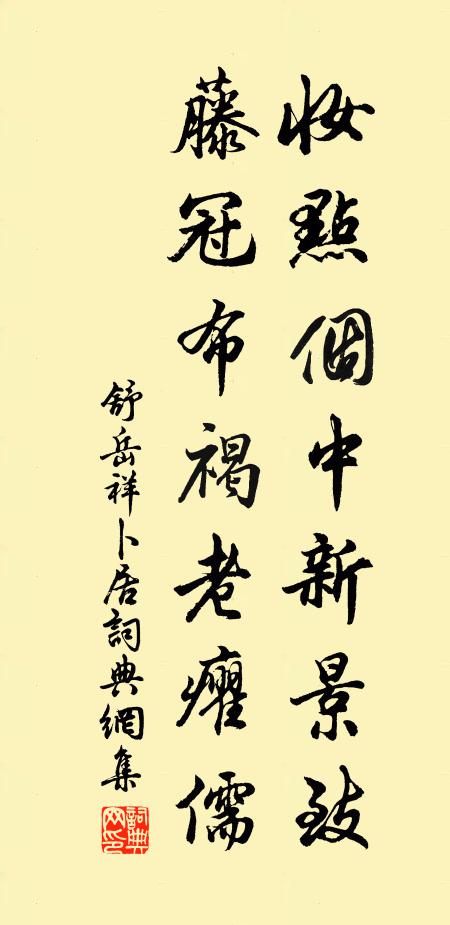 妝點個中新景致
藤冠布褐老癯儒
舒岳祥卜居詞典網集
詞典網印